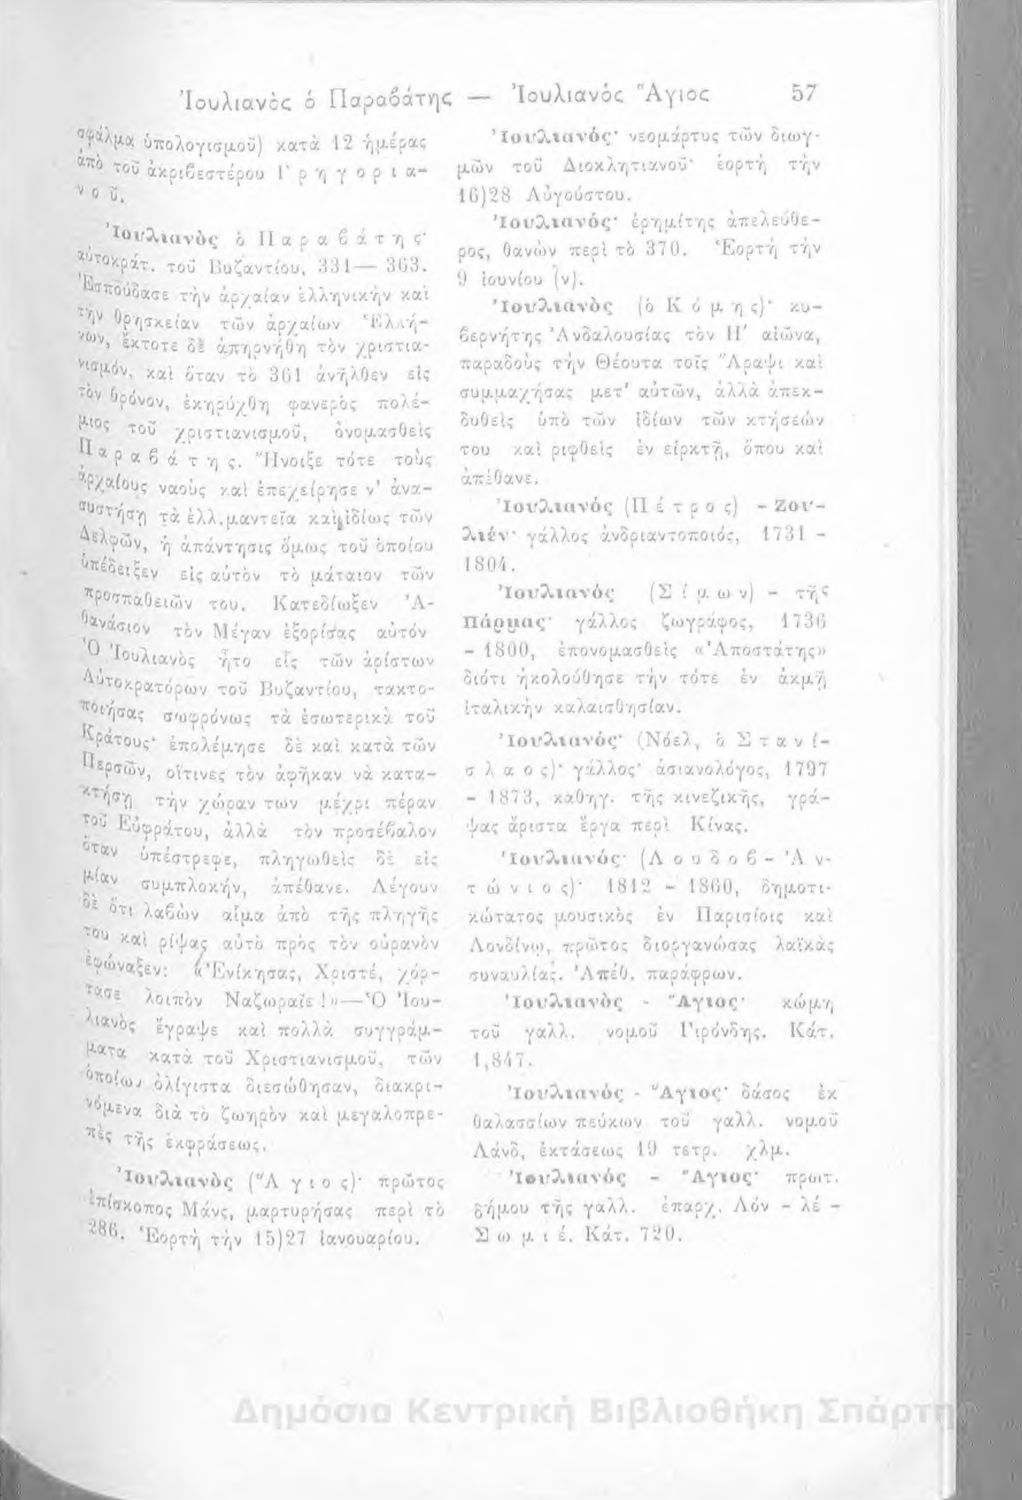 Ἰουλιανὸς ὁ Παραβάτης — Ἰουλιανὸς Ἅγιος 57
σφάλμα ὑπολογισμοῦ) κατὰ 12 ἡμέρας
ἀπὸ τοῦ ἀκριβεστέρου Γ ρ η γ ο ρ ι α-
ν ο ῦ.
Ἰουλιανὸς ὁ Π α ρ α β ά τ η ς·
αὐτοκράτ. τοῦ Βυζαντίου, 331— 363.
Ἐσπούδασε τὴν ἀρχαίαν ἑλληνικὴν καὶ
τὴν θρησκείαν τῶν ἀρχαίων Ἑλλή-
νων, ἔκτοτε δὲ ἀπηρνήθη τὸν χριστια-
νισμόν, καὶ ὅταν τὸ 361 ἀνῆλθεν εἰς
τὸν θρόνον, ἐκηρύχθη φανερὸς πολέ-
μιος τοῦ χριστιανισμοῦ, ὀνομασθεὶς
Π α ρ α β ά τ η ς. Ἤνοιξε τότε τοὺς
ἀρχαίους ναοὺς καὶ ἐπεχείρησε ν' ἀνα-
συστήσῃ τὰ ἑλλ. μαντεῖα καὶ ἰδίως τῶν
Δελφῶν, ἡ ἀπάντησις ὅμως τοῦ ὁποίου
ὑπέδειξεν εἰς αὐτὸν τὸ μάταιον τῶν
προσπαθειῶν του. Κατεδίωξεν Ἀ-
θανάσιον τὸν Μέγαν ἐξορίσας αὐτόν
Ὁ Ἰουλιανὸς ἦτο εἷς τῶν ἀρίστων
Αὐτοκρατόρων τοῦ Βυζαντίου, τακτο-
ποιήσας σωφρόνως τὰ ἐσωτερικὰ τοῦ
Κράτους· ἐπολέμησε δὲ καὶ κατὰ τῶν
Περσῶν, οἵτινες τὸν ἀφῆκαν νὰ κατα-
κτήσῃ τὴν χώραν των μέχρι πέραν
τοῦ Εὐφράτου, ἀλλὰ τὸν προσέβαλον
ὅταν ὑπέστρεφε, πληγωθεὶς δὲ εἰς
μίαν συμπλοκήν, ἀπέθανε. Λέγουν
δὲ ὅτι λαβὼν αἷμα ἀπὸ τῆς πληγῆς
του καὶ ρίψας αὐτὸ πρὸς τὸν οὐρανὸν
ἐφώναξεν: «Ἐνίκησας, Χριστέ, χόρ-
τασε λοιπὸν Ναζωραῖε!»—Ὁ Ἰου-
λιανὸς ἔγραψε καὶ πολλὰ συγγράμ-
ματα κατὰ τοῦ Χριστιανισμοῦ, τῶν
ὁποίων ὀλίγιστα διεσώθησαν, διακρι-
νόμενα διὰ τὸ ζωηρὸν καὶ μεγαλοπρε-
πὲς τῆς ἐκφράσεως.
Ἰουλιανὸς (Ἅ γ ι ο ς)· πρῶτος
ἐπίσκοπος Μάνς, μαρτυρήσας περὶ τὸ
286. Ἑορτὴ τὴν 15)27 Ἰανουαρίου.
Ἰουλιανός· νεομάρτυς τῶν διωγ-
μῶν τοῦ Διοκλητιανοῦ· ἑορτὴ τὴν
16)28 Αὐγούστου.
Ἰουλιανός· ἐρημίτης ἀπελεύθε-
ρος, θανὼν περὶ τὸ 370. Ἑορτὴ τὴν
9 ἰουνίου (ν).
Ἰουλιανὸς (ὁ Κ ό μ η ς)· κυ-
βερνήτης Ἀνδαλουσίας τὸν Η' αἰῶνα,
παραδοὺς τὴν Θέουτα τοῖς Ἄραψι καὶ
συμμαχήσας μετ' αὐτῶν, ἀλλὰ ἀπεκ-
δυθεὶς ὑπὸ τῶν ἰδίων τῶν κτήσεών
του καὶ ριφθεὶς ἐν εἱρκτῇ, ὅπου καὶ
ἀπέθανε.
Ἰουλιανός (Π έ τ ρ ο ς) - Ζου-
λιέν· γάλλος ἀνδριαντοποιός, 1731 -
1804.
Ἰουλιανός (Σ ί μ ω ν) - τῆς
Πάρμας· γάλλος ζωγράφος, 1736
- 1800, ἐπονομασθεὶς «Ἀποστάτης»
διότι ἠκολούθησε τὴν τότε ἐν ἀκμῇ
ἰταλικὴν καλαισθησίαν.
Ἰουλιανός· (Νόελ, ὁ Σ τ α ν ί-
σ λ α ο ς)· γάλλος· ἀσιανολόγος, 1797
- 1873, καθηγ. τῆς κινεζικῆς, γρά-
ψας ἄριστα ἔργα περὶ Κίνας.
Ἰουλιανός· (Λ ο υ δ ο β - Ἀ ν-
τ ώ ν ι ο ς)· 1812 - 1860, δημοτι-
κώτατος μουσικὸς ἐν Παρισίοις καὶ
Λονδίνῳ, πρῶτος διοργανώσας λαϊκὰς
συναυλίας. Ἀπέθ. παράφρων.
Ἰουλιανὸς - Ἅγιος· κώμη
τοῦ γαλλ. νομοῦ Γιρόνδης. Κάτ.
1,847.
Ἰουλιανός - Ἅγιος· δάσος ἐκ
θαλασσίων πεύκων τοῦ γαλλ. νομοῦ
Λάνδ, ἐκτάσεως 19 τετρ. χλμ.
Ἰουλιανός - Ἅγιος· πρωτ.
δήμου τῆς γαλλ. ἐπαρχ. Λόν - λέ -
Σ ω μ ι έ. Κάτ. 720.
Δημόσια Κεντρική Βιβλιοθήκη Σπάρτη